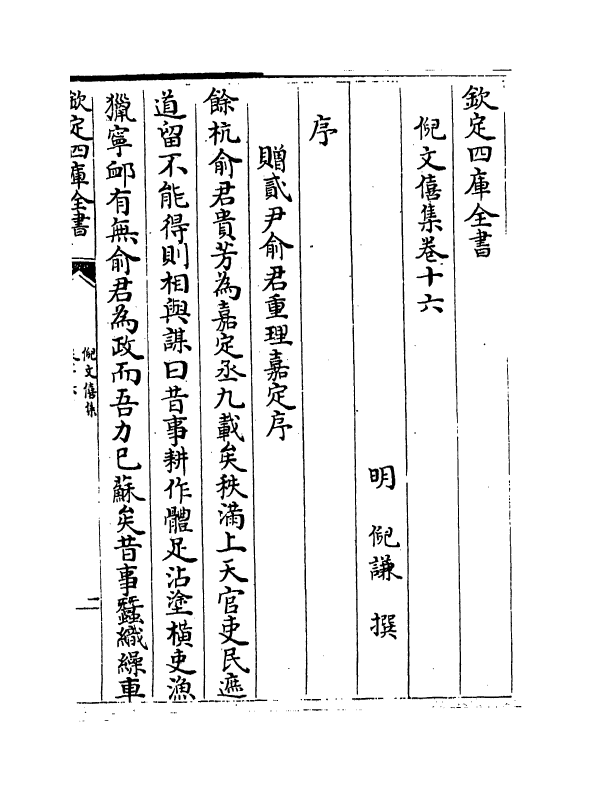 欽定四庫全書
倪文僖集卷十六
明 倪謙 撰
序
贈貳尹俞君重理嘉定序
餘杭俞君貴芳為嘉定丞九載矣秩滿上天官吏民遮
道留不能得則相與謀曰昔事耕作體足沾塗橫吏漁
獵寧䘏有無俞君為政而吾力已蘇矣昔事蠶織繰車
欽定四庫全書
倪文僖集